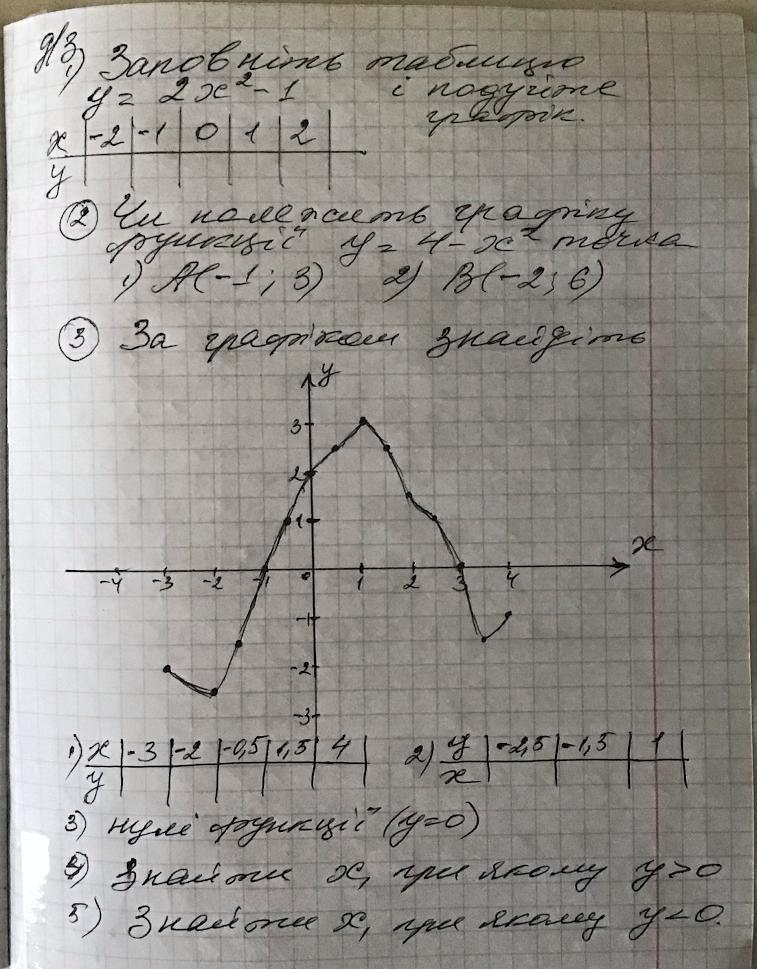 Д/З
1) Заповніть таблицю
y = 2x² - 1 і побудуйте
графік.
x -2 -1 0 1 2
y
② Чи належить графіку
функції y = 4 - x² точка
1) A(-1; 3) 2) B(-2; 6)
③ За графіком знайдіть
y
3
2
1
x
-4 -3 -2 -1 0 1 2 3 4
-1
-2
-3
1) x -3 -2 -0,5 1,5 4
y
2) y -2,5 -1,5 1
x
3) нулі функції (y=0)
4) Знайти x, при якому y>0
5) Знайти x, при якому y<0.